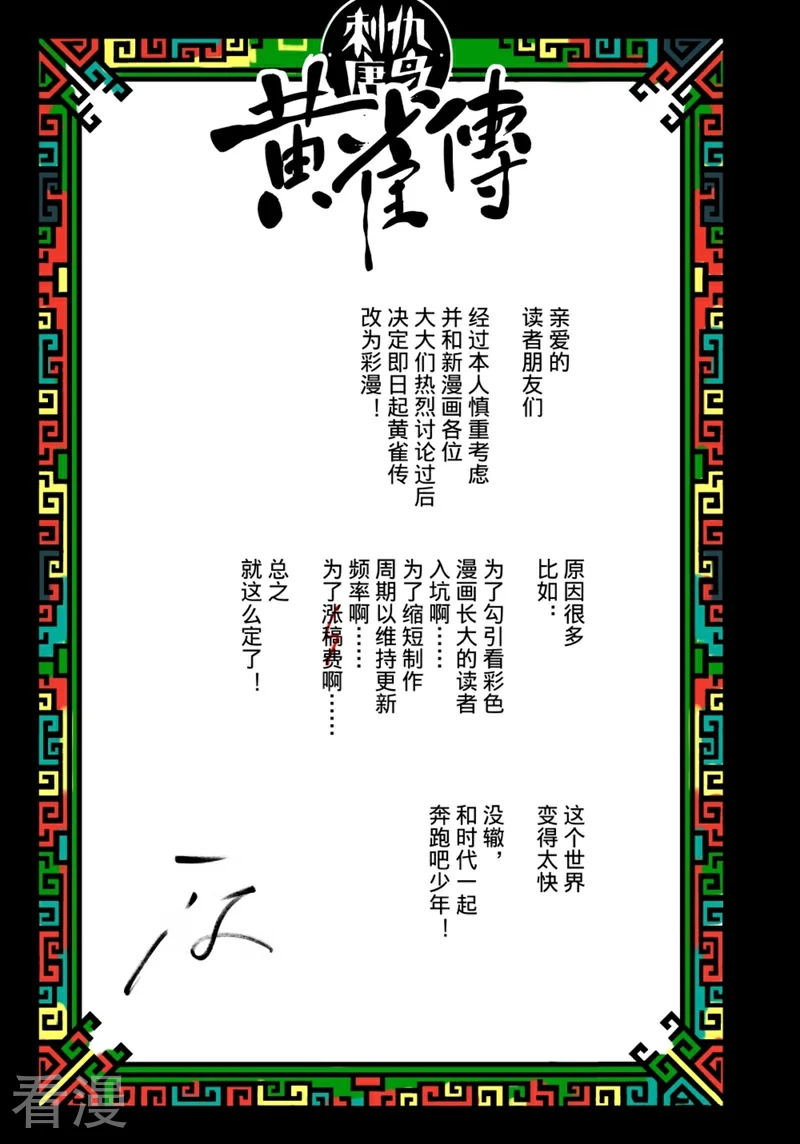 刺仇
唐鸟
黄雀傳
亲爱的
读者朋友们
经过本人慎重考虑
并和新漫画各位
大大们热烈讨论过后
决定即日起黄雀传
改为彩漫！
原因很多
比如：
为了勾引看彩色
漫画长大的读者
入坑啊……
为了缩短制作
周期以维持更新
频率啊……
为了涨稿费啊……
总之
就这么定了！
这个世界
变得太快
没辙，
和时代一起
奔跑吧少年！
看漫